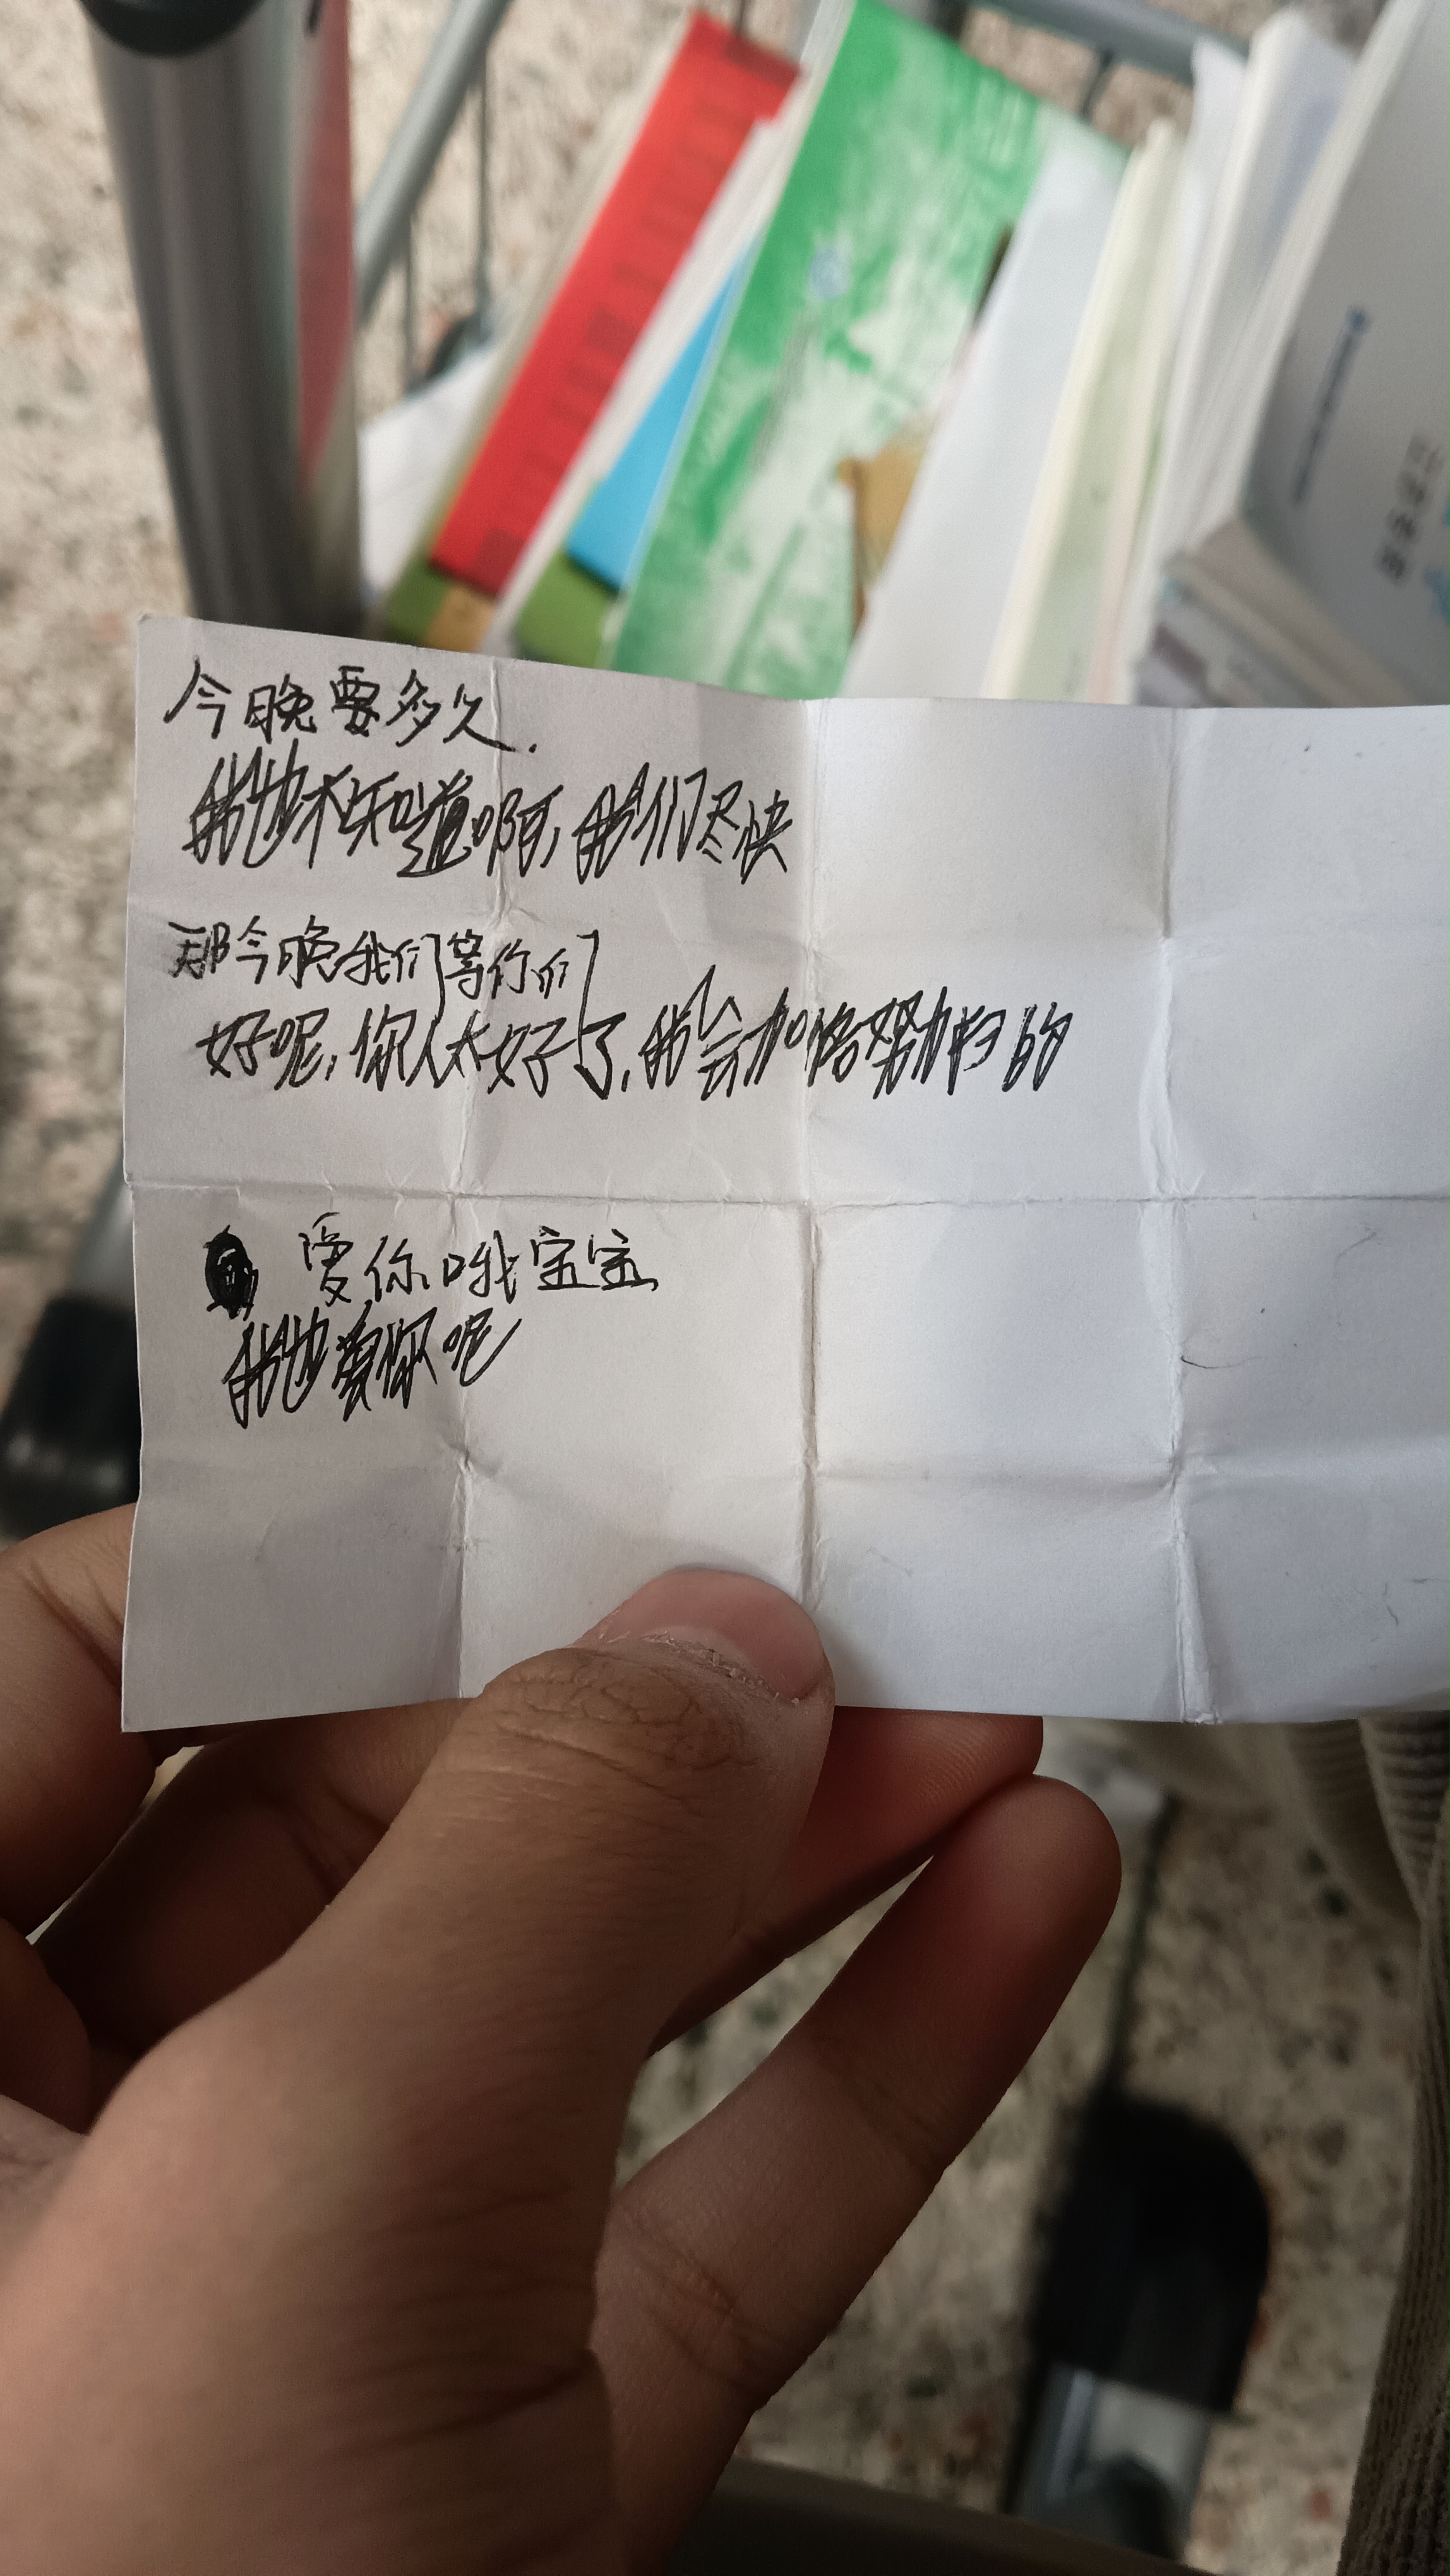 今晚要多久.
我也不知道啊,我们尽快
那今晚我们等你们
好呢,你人太好了,我会加倍努力扫的
爱你哦宝宝
我也爱你呢